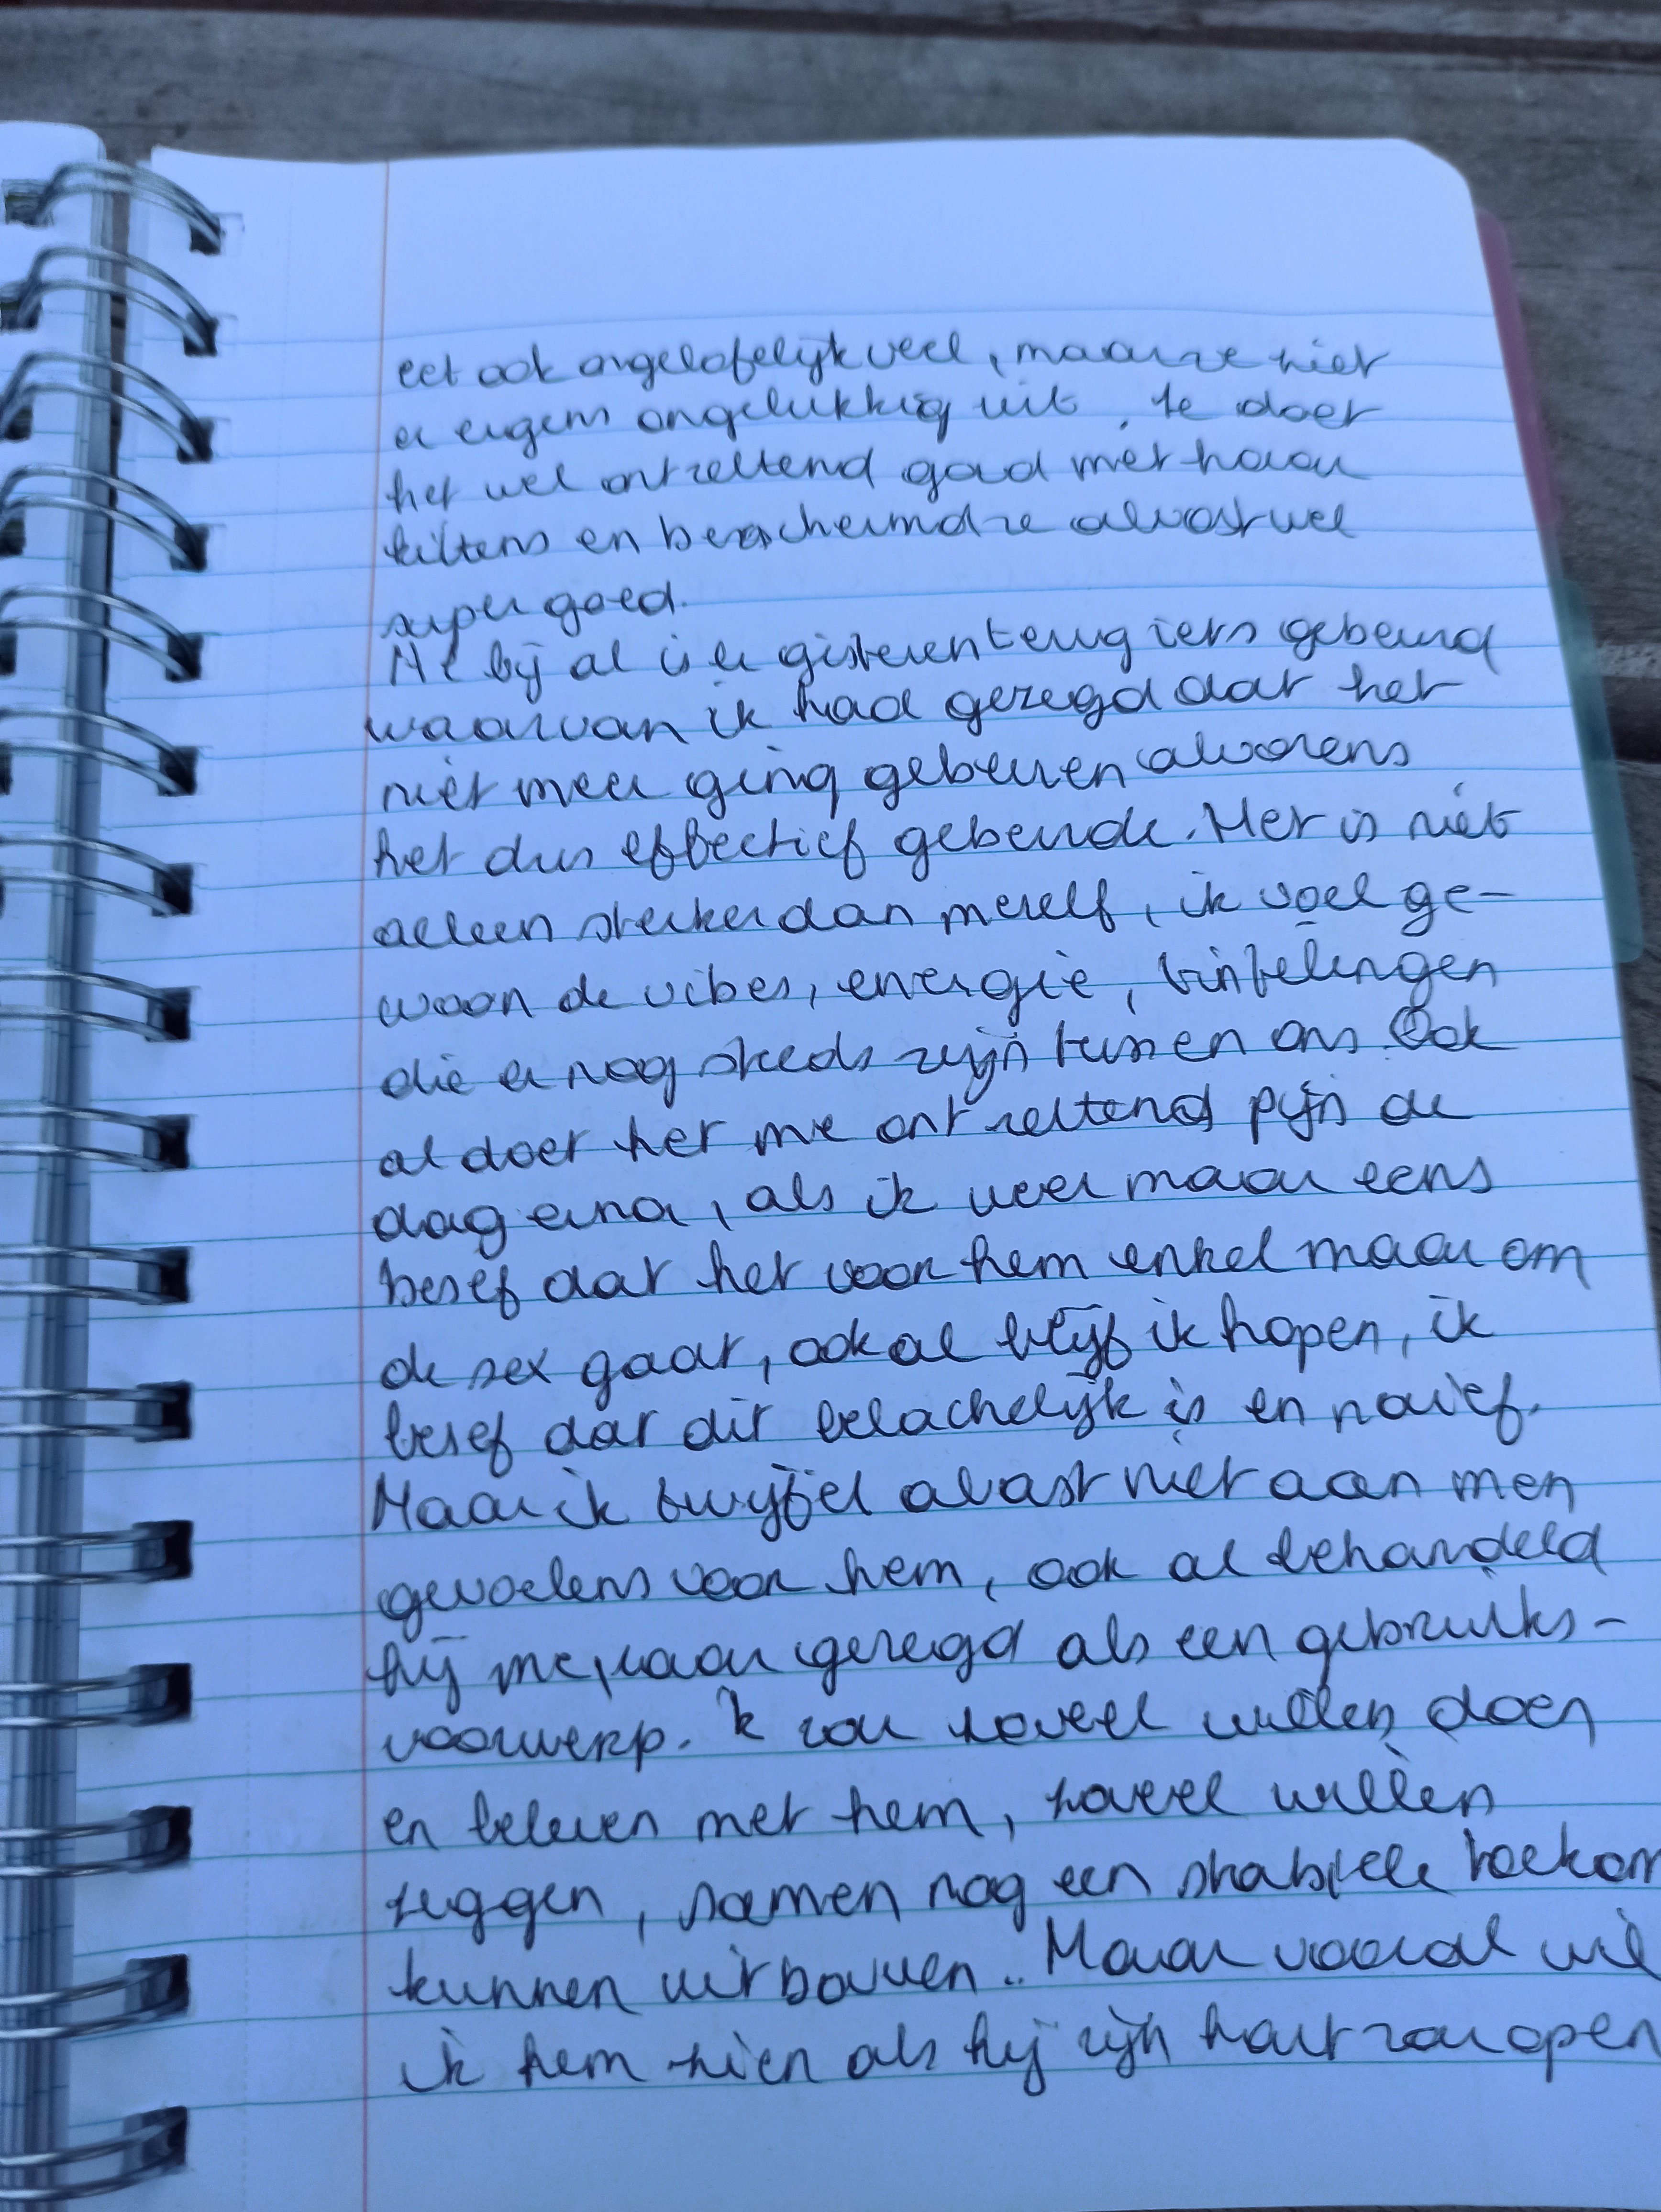 eet ook ongelofelijk veel, maar ze ziet
er ergens ongelukkig uit. Ze doet
het wel ontzettend goed met haar
kittens en beschermd ze alvast wel
super goed.
Al bij al is er gisteren terug iets gebeurd
waarvan ik had gezegd dat het
niet meer ging gebeuren alvorens
het dus effectief gebeurde. Het is niet
alleen sterker dan mezelf, ik voel ge-
woon de vibes, energie, tintelingen
die er nog steeds zijn tussen ons. Ook
al doet het me ontzettend pijn de
dag erna, als ik weer maar eens
besef dat het voor hem enkel maar om
de sex gaat, ook al blijf ik hopen, ik
besef dat dit belachelijk is en naïef.
Maar ik twijfel alvast niet aan men
gevoelens voor hem, ook al behandeld
hij me, raar gezegd als een gebruiks-
voorwerp. Ik zou zoveel willen doen
en beleven met hem, zoveel willen
zeggen, samen nog een stabiele toekom
kunnen uitbouwen.. Maar vooral wil
ik hem zien als hij zijn hart zou open